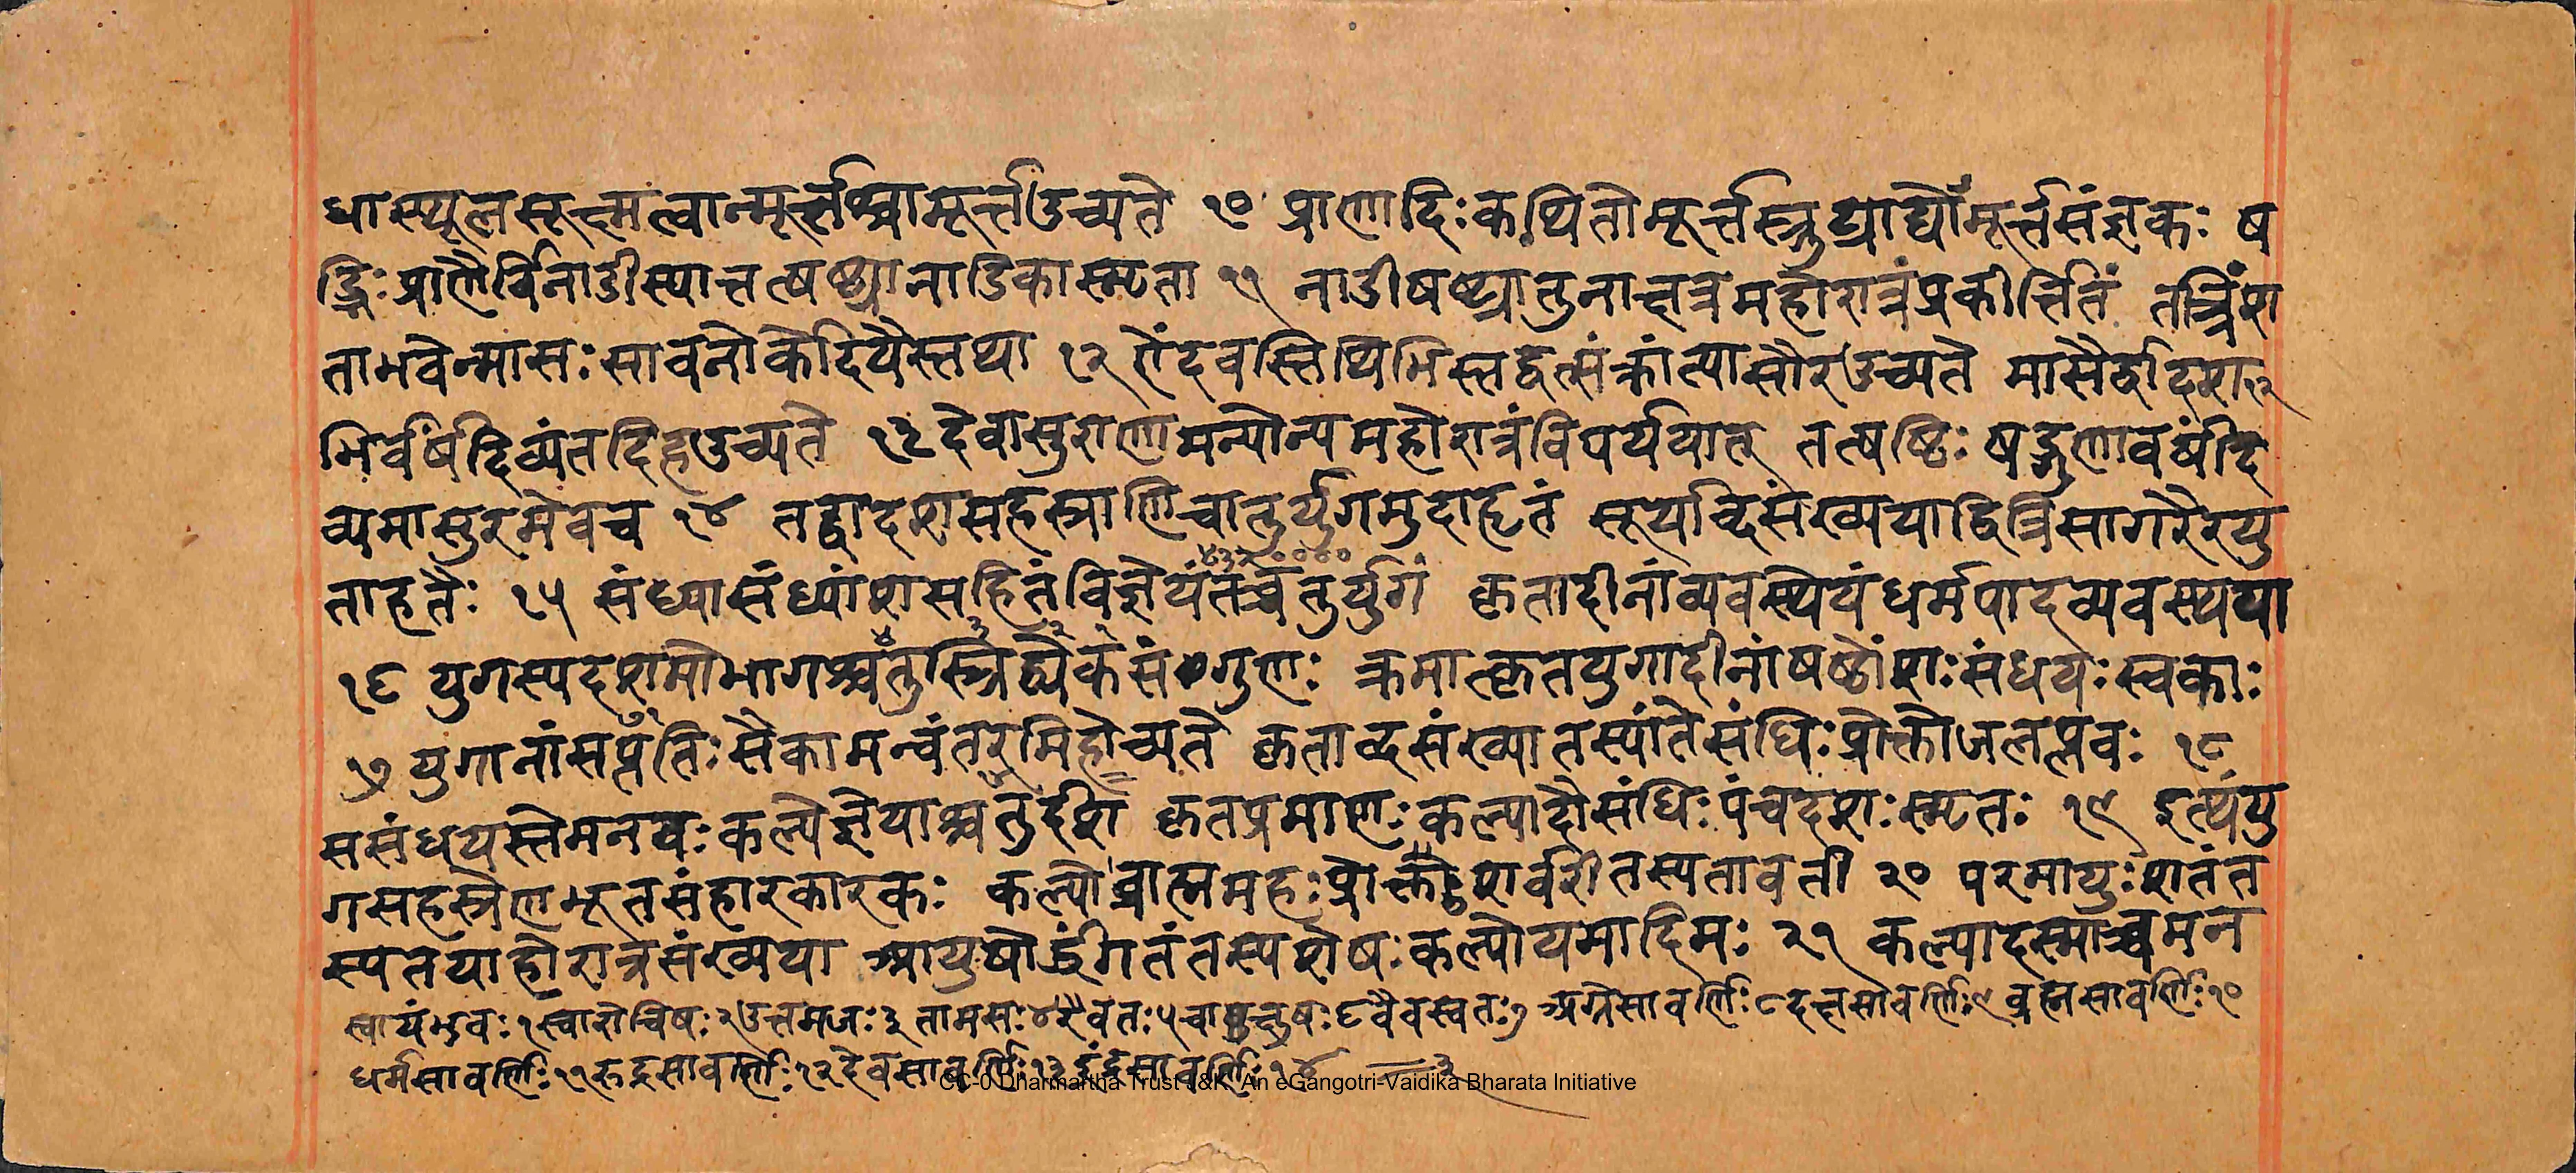 धास्थूलसूक्ष्मत्वान्मूर्त्तश्चामूर्त्तउच्यते १० प्राणादिःकथितोमूर्त्तस्त्रुट्याद्योमूर्त्तसंज्ञकः ष
ड्भिःप्राणैर्विनाडीस्यात्तत्षष्ट्यानाडिकास्मृता ११ नाडीषष्ट्यातुनाक्षत्रमहोरात्रंप्रकीर्त्तितं तत्त्रिंश
ताभवेन्मासःसावनोर्कोदयैस्तथा १२ ऐंदवस्तिथिभिस्तद्वत्संक्रांत्यासौरउच्यते मासैर्द्वादश
भिर्वर्षंदिव्यंतदिहउच्यते १३ देवासुराणामन्योन्यमहोरात्रंविपर्ययात् तत्षष्टिः षड्गुणावर्षंदि
व्यमासुरमेवच १४ तद्द्वादशसहस्राणिचातुर्युगमुदाहृतं सूर्याब्दसंख्ययाद्वित्रिसागरैरयु
४३२००००
ताहतैः १५ संध्यासंध्यांशसहितंविज्ञेयंतच्चतुर्युगं कृतादीनांव्यवस्थेयंधर्मपादव्यवस्थया
४ ३ २ १
१६ युगस्यदशमोभागश्चतुस्त्रिद्व्येकसंगुणः क्रमात्कृतयुगादीनांषष्ठोंशःसंधयःस्वकाः
१७ युगानांसप्ततिःसैकामन्वंतरमिहोच्यते कृताब्दसंख्यातस्यांतेसंधिःप्रोक्तोजलप्लवः १८
ससंधयस्तेमनवःकल्पेज्ञेयाश्चतुर्दश कृतप्रमाणःकल्पादौसंधिःपंचदशःस्मृतः १९ इत्थंयु
गसहस्रेणभूतसंहारकारकः कल्पोब्राह्ममहःप्रोक्तंशर्वरीतस्यतावती २० परमायुःशतंत
स्यतयाहोरात्रसंख्यया आयुषोर्द्धंगतंतस्यशेषःकल्पोयमादिमः २१ कल्पादस्माच्चमन
स्वायंभुवः१स्वारोचिषः२उत्तमजः३तामसः४रैवतः५चाक्षुषः६वैवस्वतः७अग्नेसावर्णिः८दक्षसावर्णिः९ब्रह्मसावर्णिः१०
धर्मसावर्णिः११रुद्रसावर्णिः१२देवसावर्णिः१३इंद्रसावर्णिः१४
CC-0 Dharmartha Trust J&K. An eGangotri-Vaidika Bharata Initiative